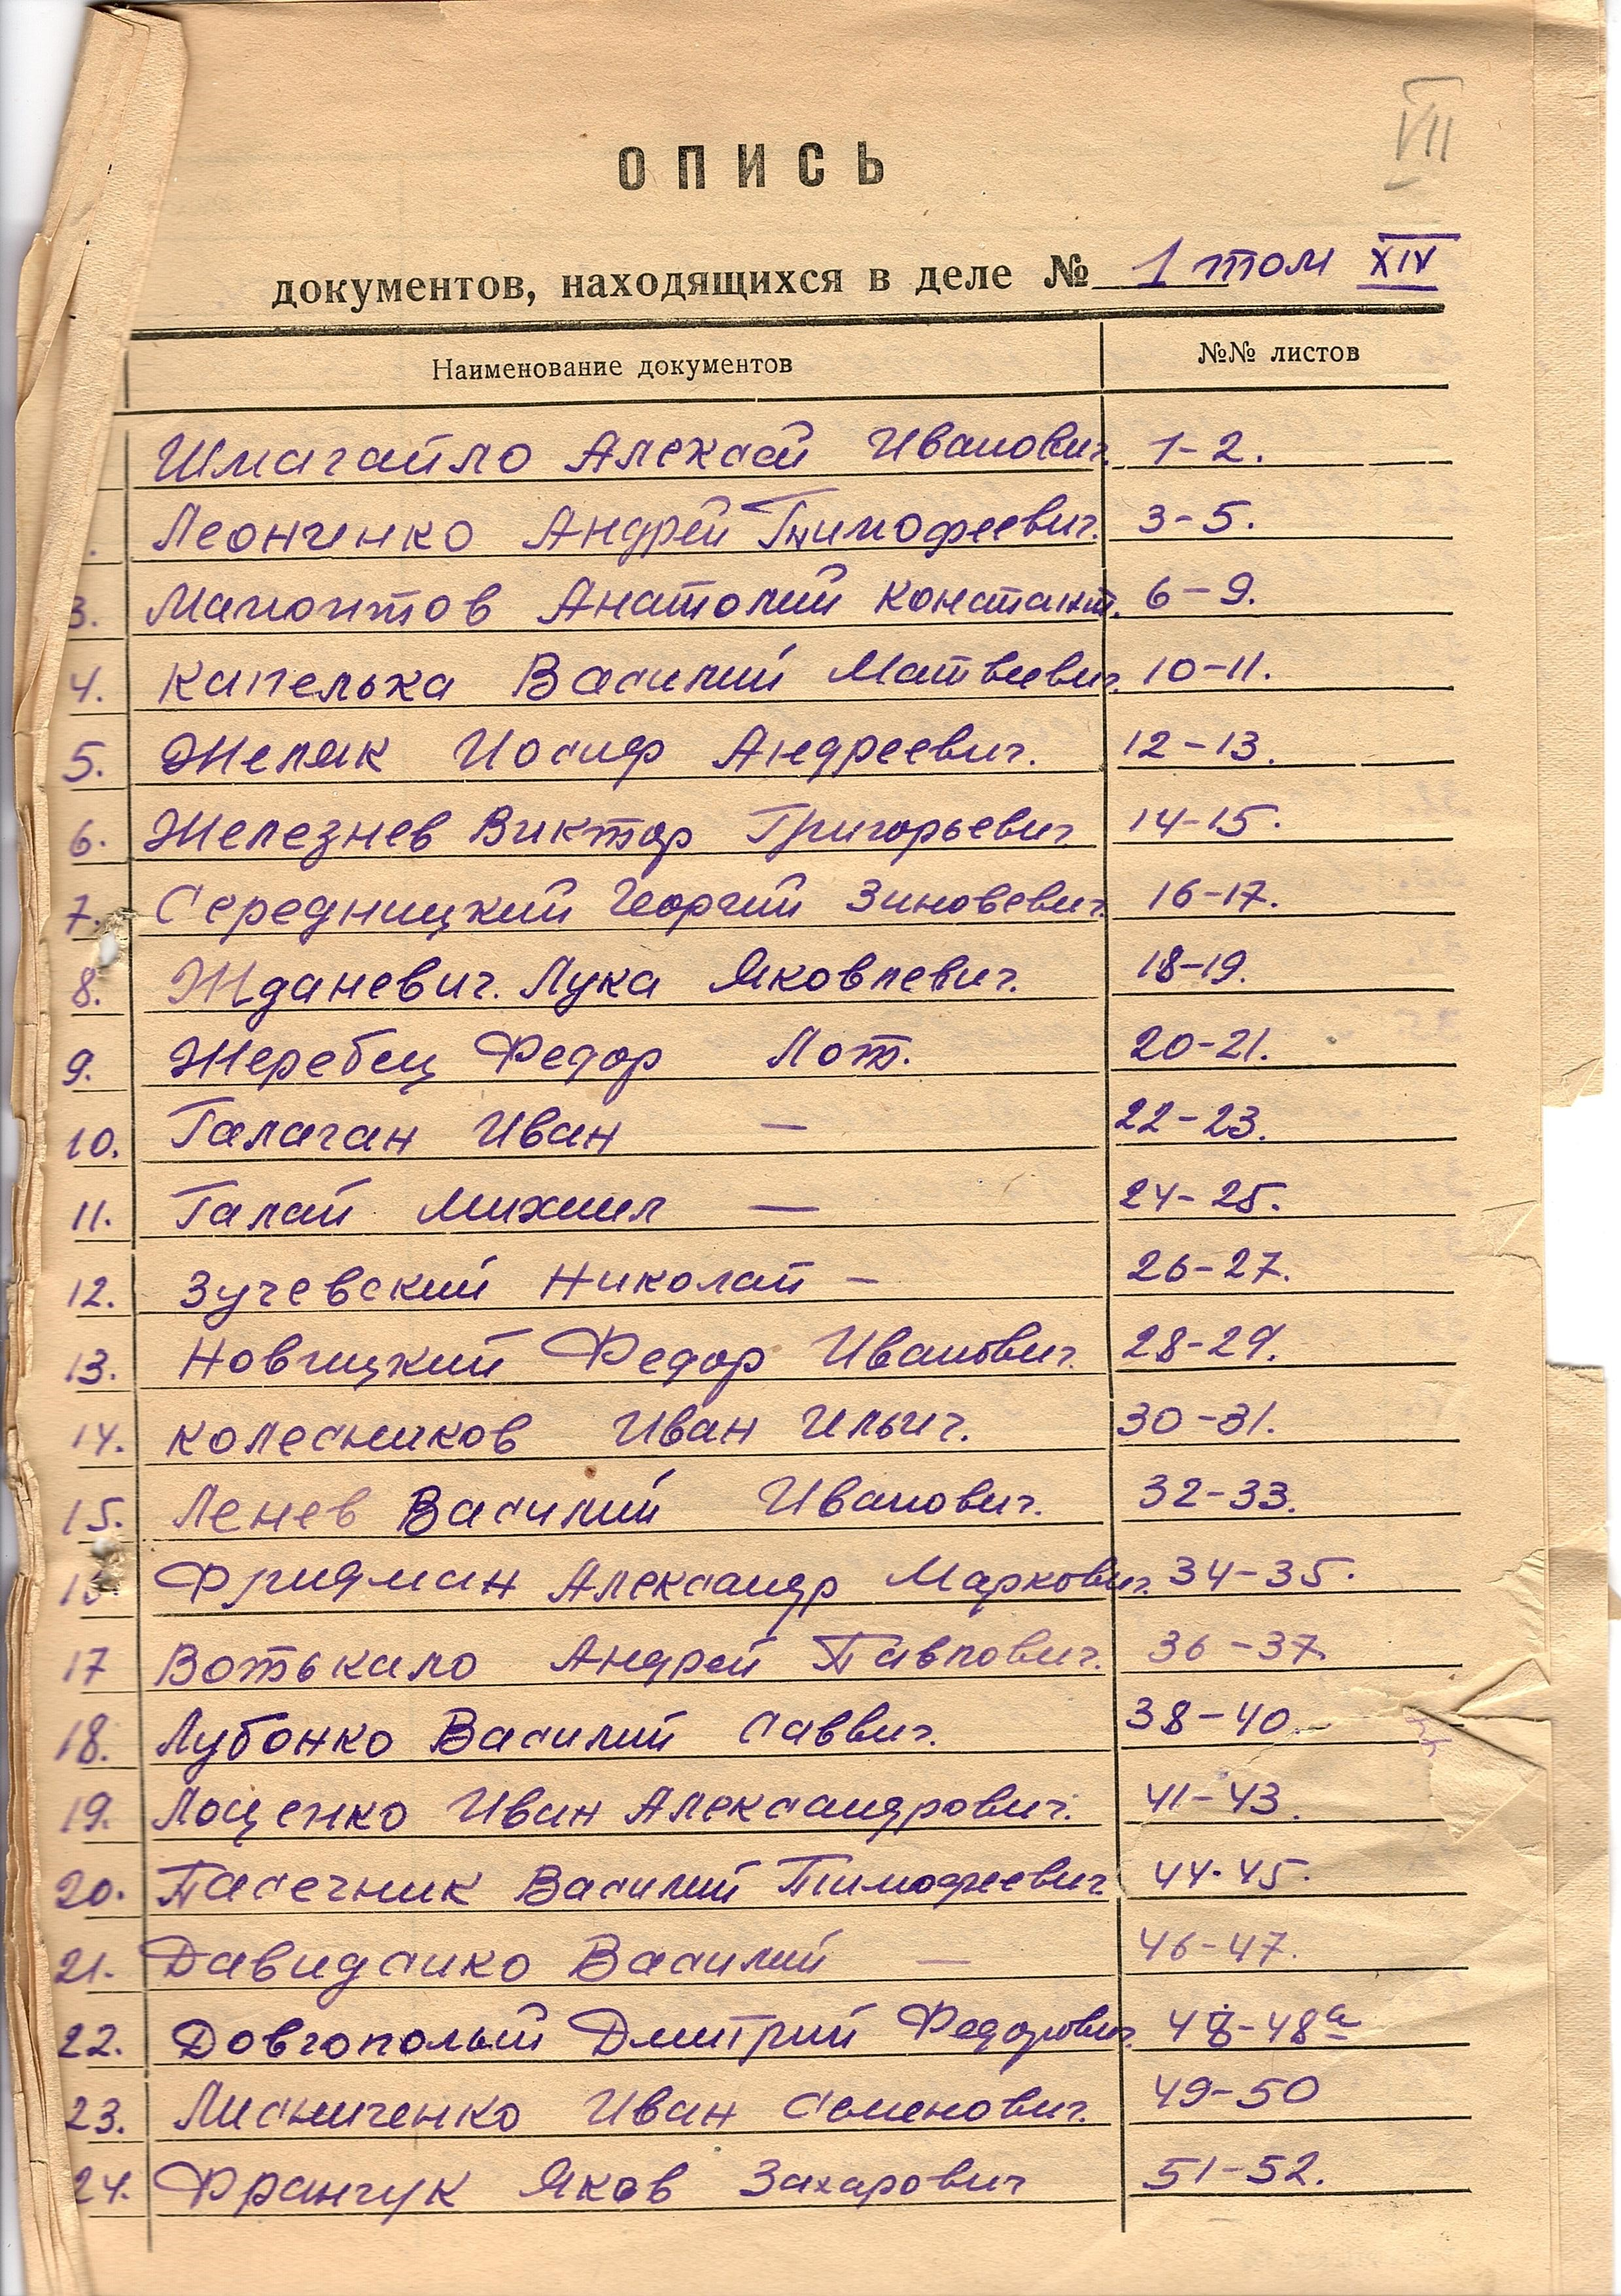 VII
ОПИСЬ
документов, находящихся в деле № 1 том XIV
Наименование документов №№ листов
Шмагайло Алексей Иванович. 1-2.
Леонченко Андрей Тимофеевич. 3-5.
3. Мамонтов Анатолий Констант. 6-9.
4. Капелька Василий Матвеевич. 10-11.
5. Жепяк Иосиф Андреевич. 12-13.
6. Железнев Виктор Григорьевич 14-15.
7. Середницкий Георгий Зиновевич. 16-17.
8. Жданевич. Лука Яковлевич. 18-19.
9. Жеребец Федор Пот. 20-21.
10. Галаган Иван — 22-23.
11. Галай Михаил — 24-25.
12. Зучевский Николай — 26-27.
13. Новицкий Федор Иванович. 28-29.
14. Колесников Иван Ильич. 30-31.
15. Ленев Василий Иванович. 32-33.
16. Фридман Александр Маркович. 34-35.
17 Вотькало Андрей Павлович. 36-37.
18. Лубонко Василий Саввич. 38-40.
19. Лощенко Иван Александрович. 41-43.
20. Пасечник Василий Тимофеевич 44-45.
21. Давиденко Василий — 46-47.
22. Довгополый Дмитрий Федорович. 48-48а
23. Лисниченко Иван Семенович. 49-50
24. Франчук Яков Захарович 51-52.